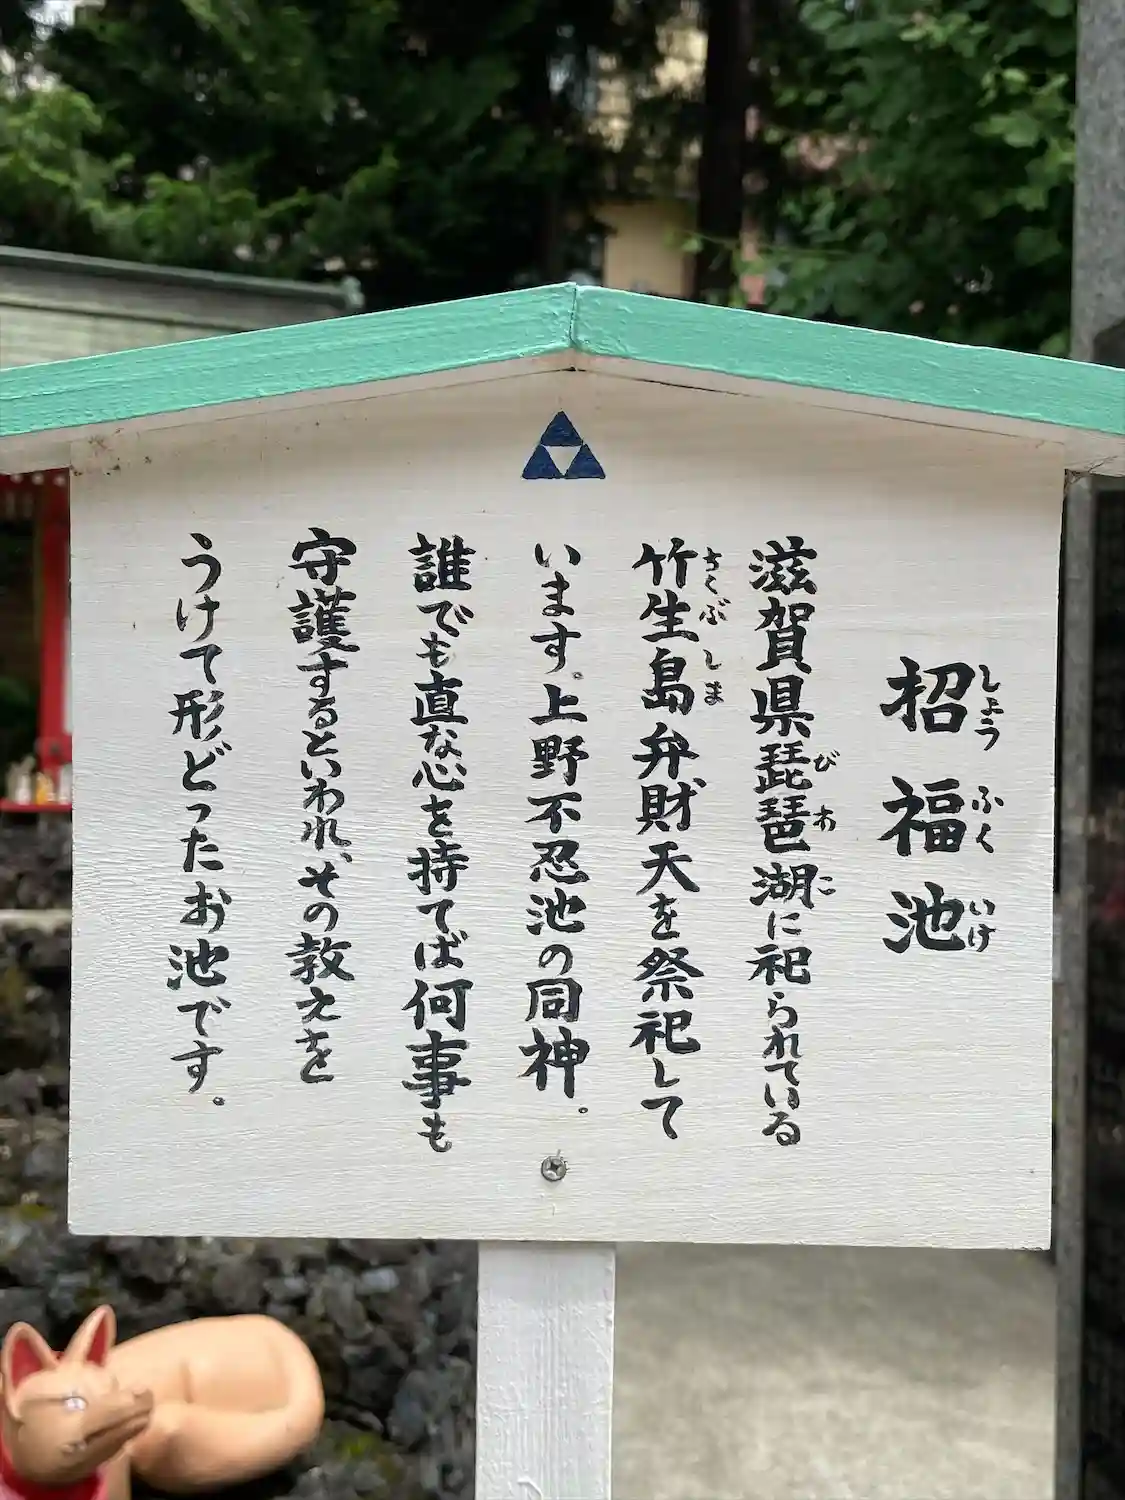 招福池
しょうふくいけ
滋賀県琵琶湖に祀られている
びわこ
竹生島弁財天を祭祀して
ちくぶしま
います。上野不忍池の同神。
誰でも直な心を持てば何事も
守護するといわれ、その教えを
うけて形どったお池です。